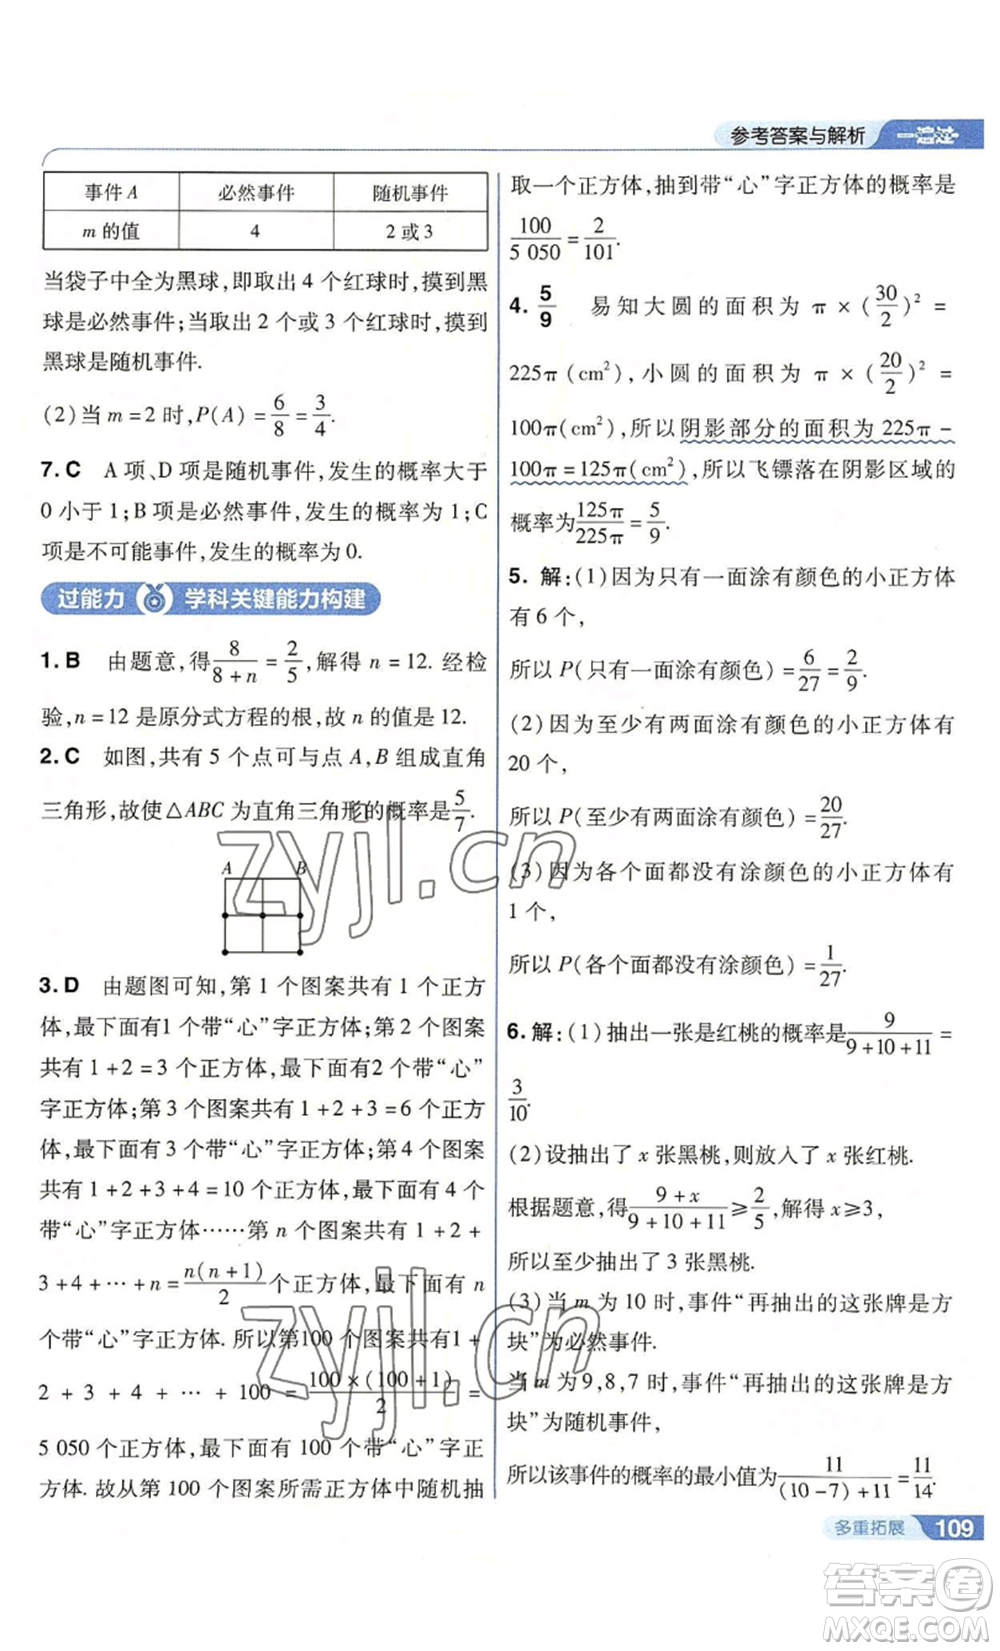 参考答案与解析 一遍过
事件 A 必然事件 随机事件
m 的值 4 2 或 3
当袋子中全为黑球,即取出 4 个红球时,摸到黑
球是必然事件;当取出 2 个或 3 个红球时,摸到
黑球是随机事件.
(2)当 m=2 时,P(A)=6/8=3/4.
7. C A 项、D 项是随机事件,发生的概率大于
0 小于 1;B 项是必然事件,发生的概率为 1;C
项是不可能事件,发生的概率为 0.
过能力 学科关键能力构建
1. B 由题意,得8/(8+n)=2/5,解得 n=12. 经检
验,n=12 是原分式方程的根,故 n 的值是 12.
2. C 如图,共有 5 个点可与点 A,B 组成直角
三角形,故使△ABC 为直角三角形的概率是5/7.
A B
3. D 由题图可知,第 1 个图案共有 1 个正方
体,最下面有1 个带“心”字正方体;第 2 个图案
共有 1+2=3 个正方体,最下面有 2 个带“心”
字正方体;第 3 个图案共有 1+2+3=6 个正方
体,最下面有 3 个带“心”字正方体;第 4 个图案
共有 1+2+3+4=10 个正方体,最下面有 4 个
带“心”字正方体……第 n 个图案共有 1+2+
3+4+…+n=n(n+1)/2个正方体,最下面有 n
个带“心”字正方体. 所以第100 个图案共有1+
2+3+4+…+100=100×(100+1)/2=
5 050 个正方体,最下面有 100 个带“心”字正
方体. 故从第 100 个图案所需正方体中随机抽
取一个正方体,抽到带“心”字正方体的概率是
100/5 050=2/101.
4. 5/9 易知大圆的面积为 π×(30/2)²=
225π(cm²),小圆的面积为 π×(20/2)²=
100π(cm²),所以阴影部分的面积为 225π-
100π=125π(cm²),所以飞镖落在阴影区域的
概率为125π/225π=5/9.
5. 解:(1)因为只有一面涂有颜色的小正方体
有 6 个,
所以 P(只有一面涂有颜色)=6/27=2/9.
(2)因为至少有两面涂有颜色的小正方体有
20 个,
所以 P(至少有两面涂有颜色)=20/27.
(3)因为各个面都没有涂颜色的小正方体有
1 个,
所以 P(各个面都没有涂颜色)=1/27.
6. 解:(1)抽出一张是红桃的概率是9/(9+10+11)=
3/10.
(2)设抽出了 x 张黑桃,则放入了 x 张红桃.
根据题意,得(9+x)/(9+10+11)≥2/5,解得 x≥3,
所以至少抽出了 3 张黑桃.
(3)当 m 为 10 时,事件“再抽出的这张牌是方
块”为必然事件.
当 m 为 9,8,7 时,事件“再抽出的这张牌是方
块”为随机事件,
所以该事件的概率的最小值为11/((10-7)+11)=11/14.
多重拓展 109
zyjl.cn
zyjl.cn
答案卷
MXQE.COM